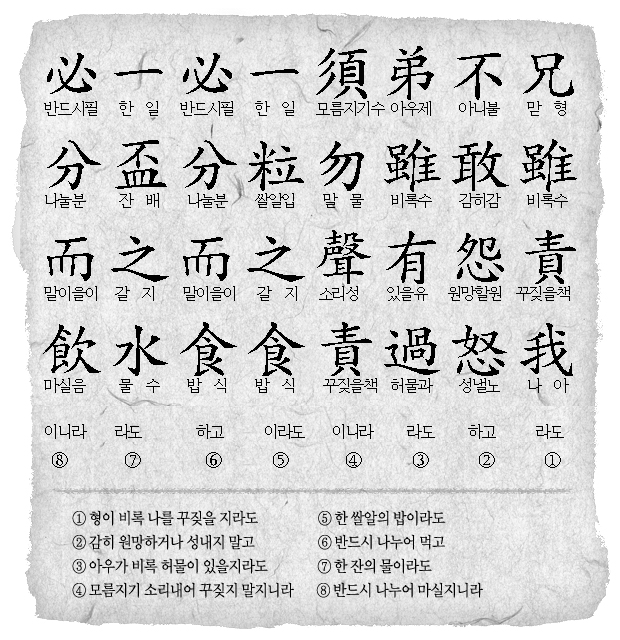 兄 맏 형 雖 비록수 責 꾸짖을책 我 나 아 라도 ①
不 아니불 敢 감히감 怨 원망할원 怒 성낼노 하고 ②
弟 아우제 雖 비록수 有 있을유 過 허물과 라도 ③
須 모름지기수 勿 말 물 聲 소리성 責 꾸짖을책 이니라 ④
一 한 일 粒 쌀알입 之 갈 지 食 밥 식 이라도 ⑤
必 반드시필 分 나눌분 而 말이을이 食 밥 식 하고 ⑥
一 한 일 盃 잔 배 之 갈 지 水 물 수 라도 ⑦
必 반드시필 分 나눌분 而 말이을이 飲 마실음 이니라 ⑧
① 형이 비록 나를 꾸짖을 지라도
② 감히 원망하거나 성내지 말고
③ 아우가 비록 허물이 있을지라도
④ 모름지기 소리내어 꾸짖지 말지니라
⑤ 한 쌀알의 밥이라도
⑥ 반드시 나누어 먹고
⑦ 한 잔의 물이라도
⑧ 반드시 나누어 마실지니라